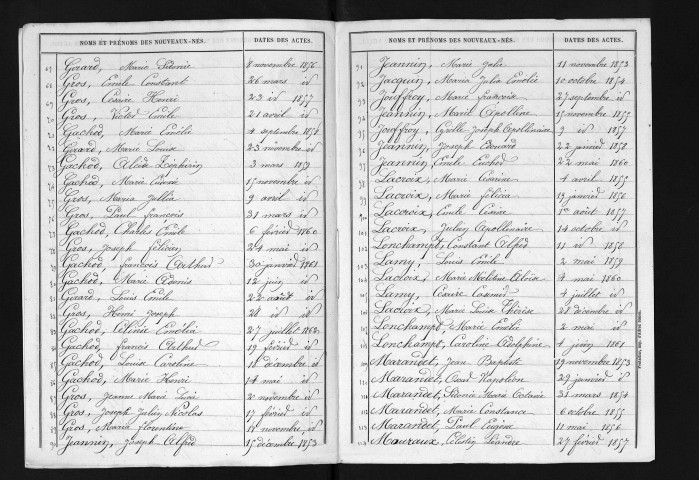 NOMS ET PRÉNOMS DES NOUVEAUX-NÉS. DATES DES ACTES.
67 Girard, Marie 8 novembre 1856
68 Gros, Emile Constant 26 mars id
69 Gros, Henri 23 id 1857
70 Gros, Victor Emile 21 avril id
71 Gachod, Marie Emélie 4 septembre 1858
72 Girard, Marie Louise 23 novembre id
73 Gachod, Zéphirin 3 mars 1859
74 Gachod, Marie 15 novembre id
75 Gros, Maria 9 avril id
76 Gros, Paul François 31 mars id
77 Gachod, Charles Emile 6 février 1860
78 Gros, Joseph Félicien 24 mai id
79 Gachod, François Arthur 30 janvier 1861
80 Gachod, Marie Adonis 12 juin id
81 Girard, Louis Emile 22 août id
82 Gros, Henri Joseph 28 id id
83 Gachod, Emélia 27 juillet 1862
84 Gachod, Francis Arthur 19 février id
85 Gachod, Louise Caroline 18 décembre id
86 Gachod, Marie Henri 14 mai id
87 Gros, Jeanne Marie 2 novembre id
88 Gros, Joseph Julien Nicolas 17 février id
89 Gros, Maria Florentine 19 novembre id
90 Jeannin, Joseph Alfred 15 décembre 1853
NOMS ET PRÉNOMS DES NOUVEAUX-NÉS. DATES DES ACTES.
91 Jeannin, Marie Julie 11 novembre 1853
92 Jacquin, Maria Julia Emélie 10 octobre 1854
93 Jouffroy, Marie Françoise 27 septembre id
94 Jeannin, Marie Apolline 15 novembre 1855
95 Jouffroy, Joseph Apollinaire 9 id 1857
96 Jeannin, Joseph Edouard 22 janvier 1858
97 Jeannin, Emile 22 mai 1860
98 Lacroix, Marie 4 avril 1855
99 Lacroix, Marie Félicia 19 janvier 1856
100 Lacroix, Emile 1er août 1857
101 Lacroix, Julien Apollinaire 14 octobre id
102 Lonchampt, Constant Alfred 11 id 1858
103 Lamy, Louis Emile 2 mai 1859
104 Lacroix, Marie 4 mai 1860
105 Lamy, Casimir 4 juillet id
106 Lacroix, Marie Louise Thérèse 28 décembre id
107 Lonchampt, Marie Emélie 2 mai id
108 Lonchampt, Caroline Adolphine 4 juin 1861
109 Marandet, Jean Baptiste 19 novembre 1853
110 Marandet, Napoléon 29 janvier id
111 Marandet, Maria Octavie 31 mars 1854
112 Marandet, Marie Constance 6 octobre 1855
113 Marandet, Paul Eugène 11 mai 1856
114 Moureaux, Célestin Léandre 27 février 1857